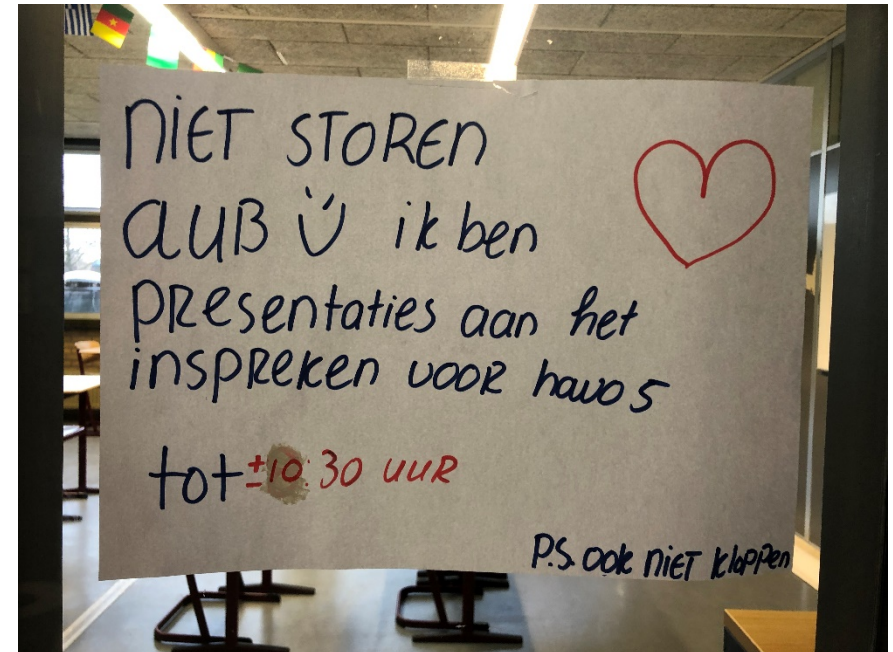 NIET STOREN
AUB ik ben
PREsentaties aan het
insprEKEn voor havo 5
tot ±10:30 uur
P.S. ook niet kloppen